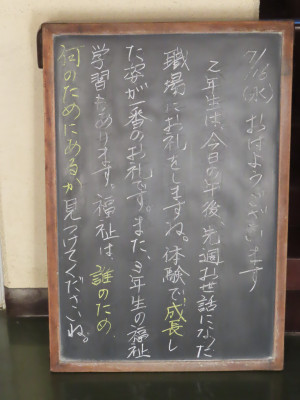 7/16(水)おはようございます
2年生は、今日の午後、先週お世話になった
職場にお礼をしますね。体験で成長し
た姿が一番のお礼です。また、3年生の福祉
学習もあります。福祉は、誰のため
何のためにあるか見つけてくださいね。